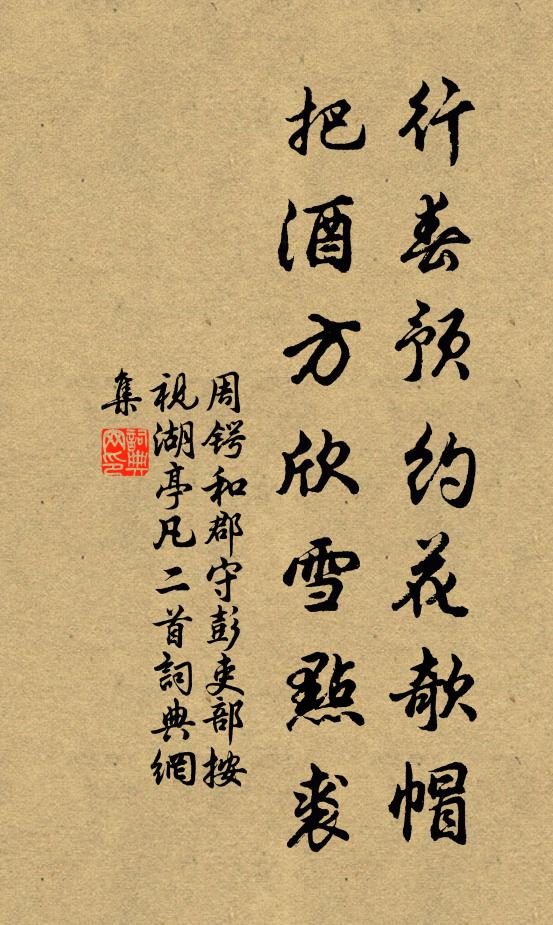 行春預約花欹帽
把酒方欣雪點裘
周鍔和郡守彭吏部按
視湖亭凡二首詞典網
集
詞典
網印